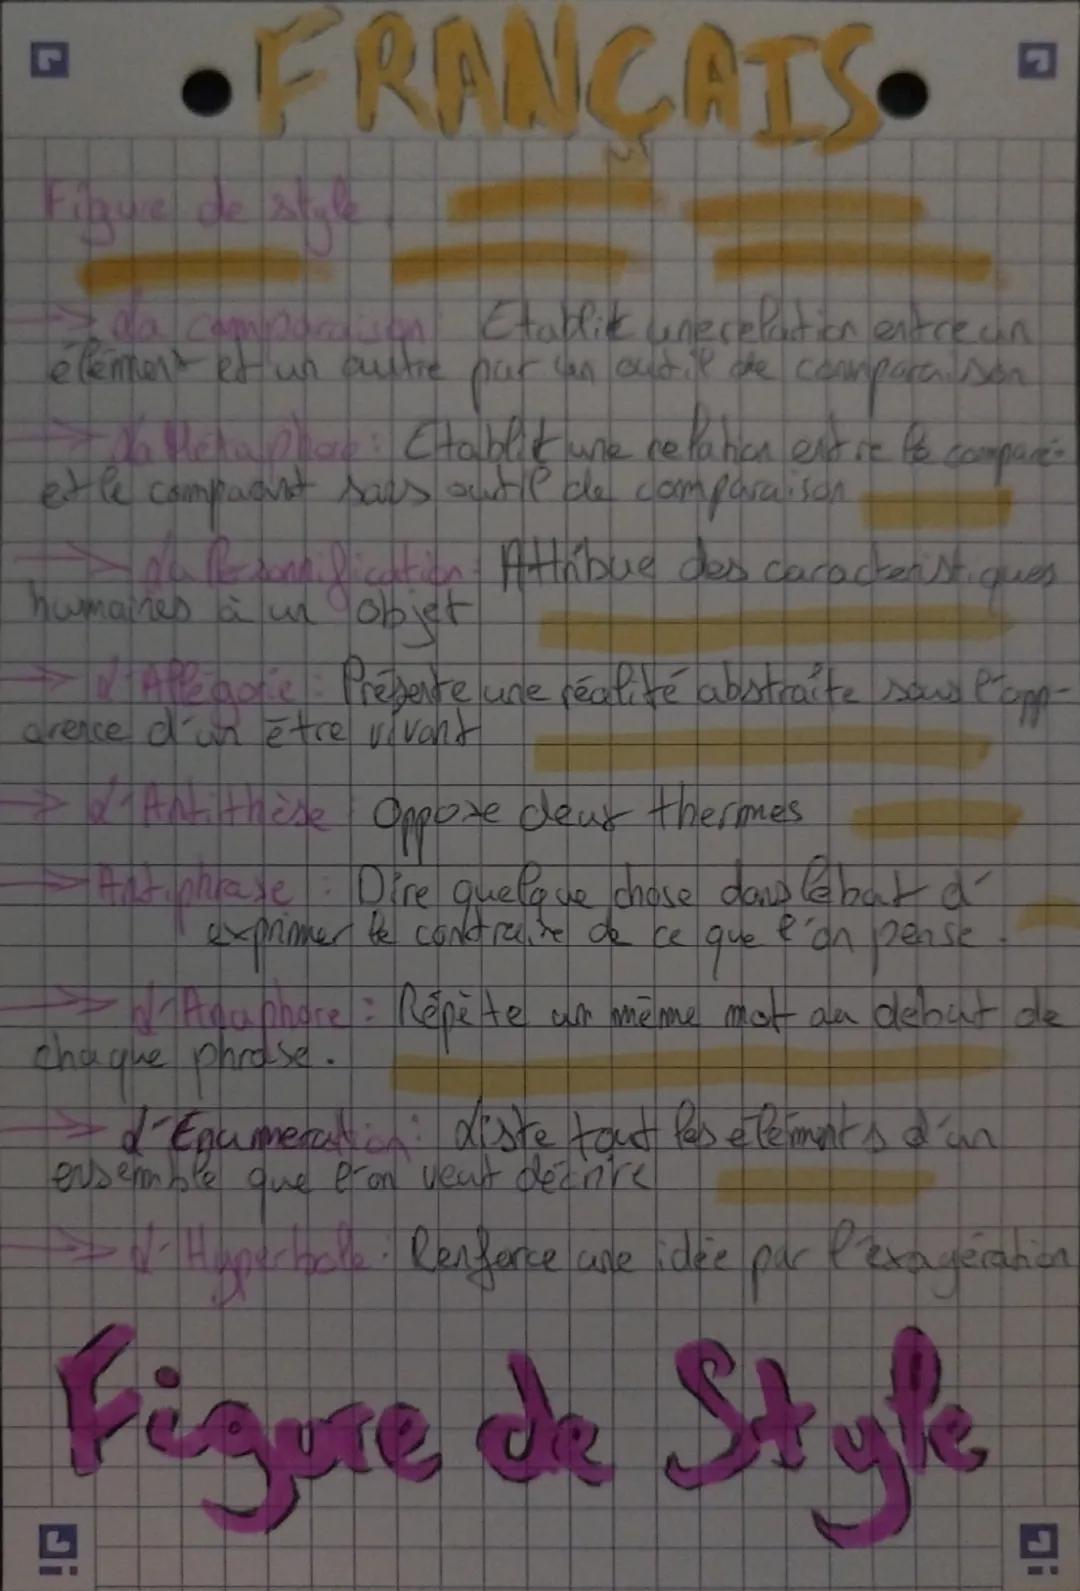 FRANÇAIS
Figure de style
→ La comparaison : Etablit une relation entre un
élément et un autre par un outil de comparaison
→ La Métaphore : Etablit une relation entre le comparé
et le comparant sans outil de comparaison
→ La Personnification : Attribue des caracteristiques
humaines à un objet
→ L'Allégorie : Présente une réalité abstraite sous l'app-
arence d'un être vivant
→ L'Antithèse : Oppose deux thermes
→ Antiphrase : Dire quelque chose dans le but d'
exprimer le contraire de ce que l'on pense.
→ L'Anaphore : Répète un même mot au debut de
chaque phrase.
→ L'Enumeration : Liste tout les éléments d'un
ensemble que l'on veut décrire
→ L'Hyperbole : Renforce une idée par l'exagération
Figure de Style